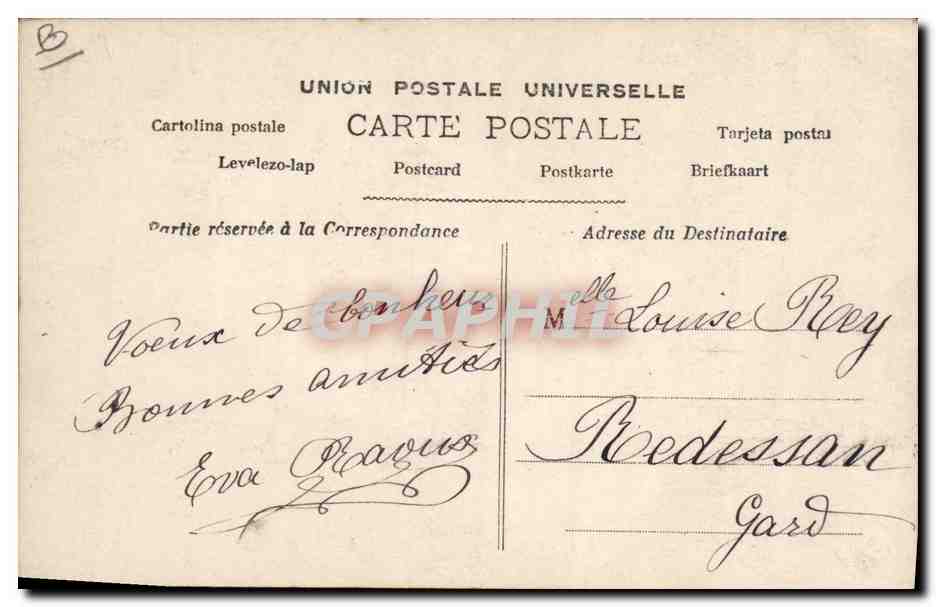 B
UNION POSTALE UNIVERSELLE
Cartolina postale CARTE POSTALE Tarjeta postal
Levelezo-lap Postcard Postkarte Briefkaart
Partie réservée à la Correspondance
Adresse du Destinataire
CPAPHIL
Voeux de bonheur
Bonnes amitiés
Eva
Melle Louise Rey
Redessan
Gard